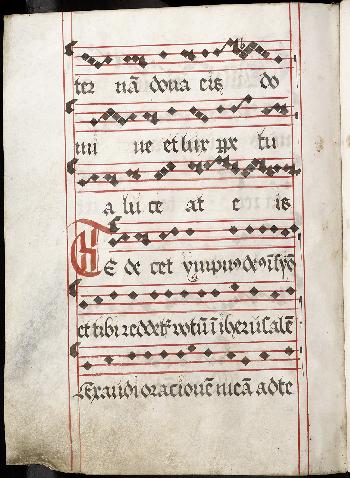 ter nā dona eis do
mi ne et lux ꝑpe tu
a lu ce at e is
TE de cet ympnꝰ deꝰ ī syō
et tibi reddet᷑ votū ī iherusalē
Exaudi oracionē meā ad te